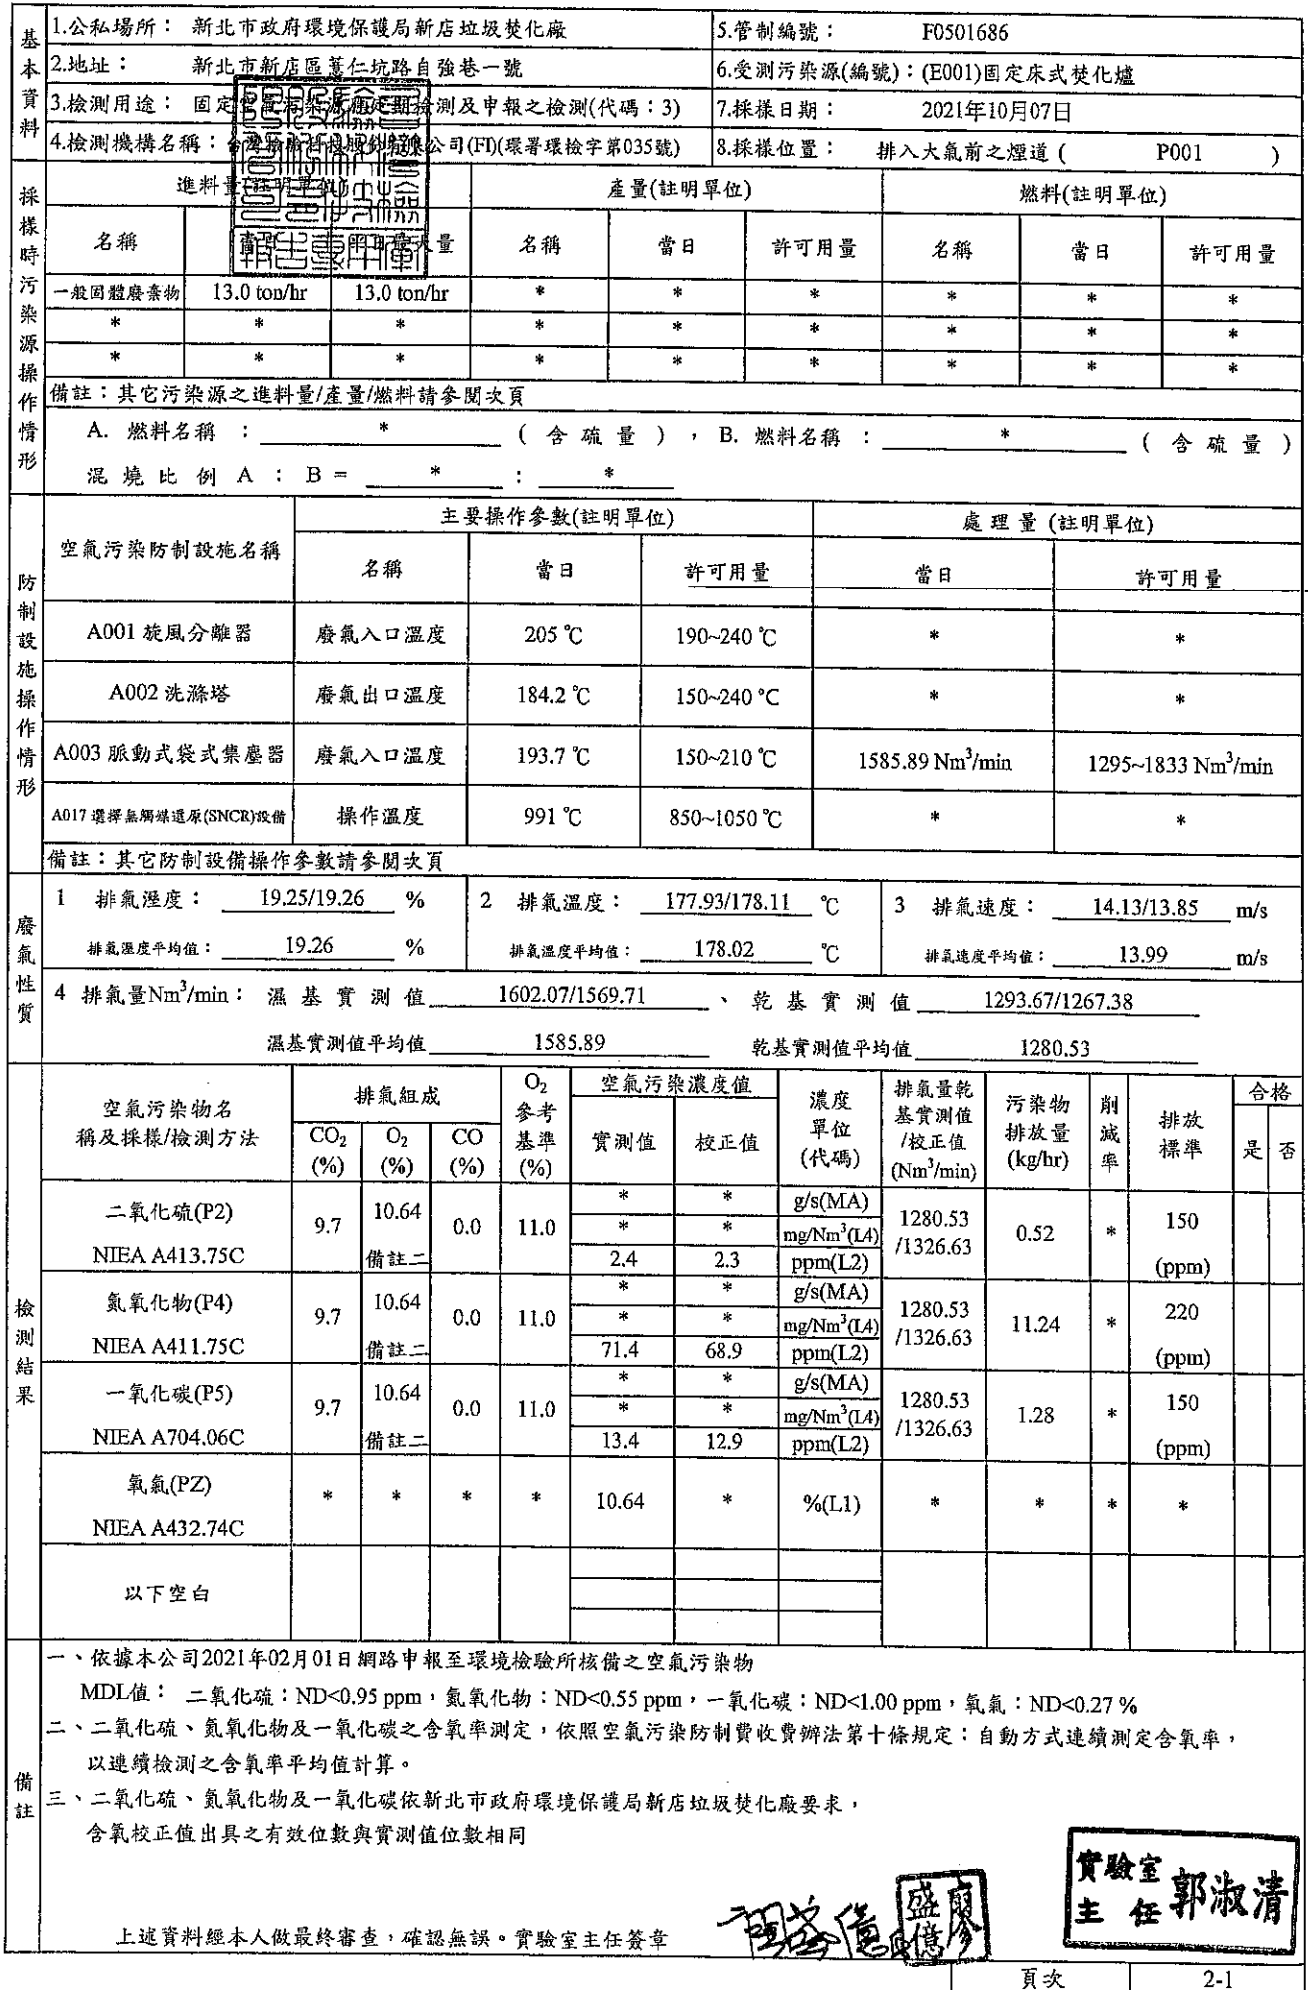 基本資料
1.公私場所： 新北市政府環境保護局新店垃圾焚化廠 5.管制編號： F0501686
2.地址： 新北市新店區薏仁坑路自強巷一號 6.受測污染源(編號)：(E001)固定床式焚化爐
3.檢測用途： 固定 檢測及申報之檢測(代碼：3) 7.採樣日期： 2021年10月07日
4.檢測機構名稱： 公司(FI)(環署環檢字第035號) 8.採樣位置： 排入大氣前之煙道 ( P001 )
採樣時污染源操作情形
進料量 產量(註明單位) 燃料(註明單位)
名稱 名稱 當日 許可用量 名稱 當日 許可用量
一般固體廢棄物 13.0 ton/hr 13.0 ton/hr * * * * * *
* * * * * * * * *
* * * * * * * * *
備註：其它污染源之進料量/產量/燃料請參閱次頁
A. 燃料名稱 ： * ( 含 硫 量 ) ，B. 燃料名稱 ： * ( 含 硫 量 )
混 燒 比 例 A ： B = * ： *
防制設施操作情形
空氣污染防制設施名稱 主要操作參數(註明單位) 處 理 量 (註明單位)
名稱 當日 許可用量 當日 許可用量
A001 旋風分離器 廢氣入口溫度 205 ℃ 190~240 ℃ * *
A002 洗滌塔 廢氣出口溫度 184.2 ℃ 150~240 ℃ * *
A003 脈動式袋式集塵器 廢氣入口溫度 193.7 ℃ 150~210 ℃ 1585.89 Nm³/min 1295~1833 Nm³/min
A017 選擇無觸媒還原(SNCR)設備 操作溫度 991 ℃ 850~1050 ℃ * *
備註：其它防制設備操作參數請參閱次頁
廢氣性質
1 排氣溼度： 19.25/19.26 % 2 排氣溫度： 177.93/178.11 ℃ 3 排氣速度： 14.13/13.85 m/s
排氣溼度平均值： 19.26 % 排氣溫度平均值： 178.02 ℃ 排氣速度平均值： 13.99 m/s
4 排氣量Nm³/min： 濕 基 實 測 值 1602.07/1569.71 、 乾 基 實 測 值 1293.67/1267.38
濕基實測值平均值 1585.89 乾基實測值平均值 1280.53
檢測結果
空氣污染物名稱及採樣/檢測方法 排氣組成 O₂參考基準(%) 空氣污染濃度值 濃度單位(代碼) 排氣量乾基實測值/校正值(Nm³/min) 污染物排放量(kg/hr) 削減率 排放標準 合格
CO₂(%) O₂(%) CO(%) 實測值 校正值 是 否
二氧化硫(P2) 9.7 10.64 0.0 11.0 * * g/s(MA) 1280.53 0.52 * 150
* * mg/Nm³(L4) /1326.63
NIEA A413.75C 備註二 2.4 2.3 ppm(L2) (ppm)
氮氧化物(P4) 9.7 10.64 0.0 11.0 * * g/s(MA) 1280.53 11.24 * 220
* * mg/Nm³(L4) /1326.63
NIEA A411.75C 備註二 71.4 68.9 ppm(L2) (ppm)
一氧化碳(P5) 9.7 10.64 0.0 11.0 * * g/s(MA) 1280.53 1.28 * 150
* * mg/Nm³(L4) /1326.63
NIEA A704.06C 備註二 13.4 12.9 ppm(L2) (ppm)
氧氣(PZ) * * * * 10.64 * %(L1) * * * *
NIEA A432.74C
以下空白
備註
一、依據本公司2021年02月01日網路申報至環境檢驗所核備之空氣污染物
MDL值： 二氧化硫：ND<0.95 ppm，氮氧化物：ND<0.55 ppm，一氧化碳：ND<1.00 ppm，氧氣：ND<0.27 %
二、二氧化硫、氮氧化物及一氧化碳之含氧率測定，依照空氣污染防制費收費辦法第十條規定：自動方式連續測定含氧率，
以連續檢測之含氧率平均值計算。
三、二氧化硫、氮氧化物及一氧化碳依新北市政府環境保護局新店垃圾焚化廠要求，
含氧校正值出具之有效位數與實測值位數相同
上述資料經本人做最終審查，確認無誤。實驗室主任簽章
廖盛億
實驗室主任 郭淑清
頁次 2-1